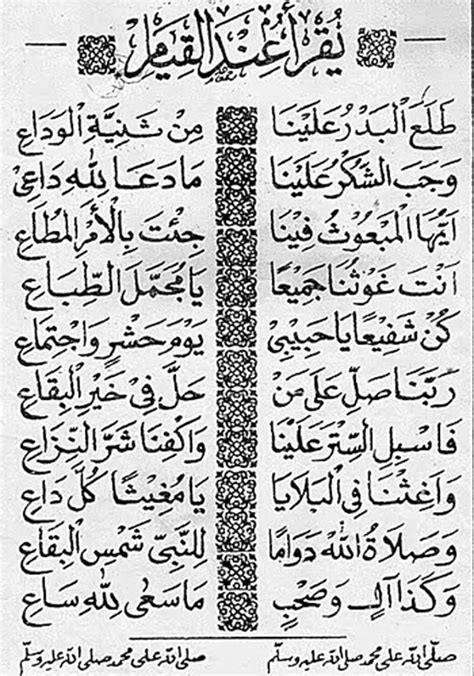 يُقْرَأُ عِنْدَ الْقِيَامِ
طَلَعَ الْبَدْرُ عَلَيْنَا مِنْ ثَنِيَّةِ الْوَدَاعِ
وَجَبَ الشُّكْرُ عَلَيْنَا مَا دَعَا لِلّٰهِ دَاعِيْ
اَيُّهَا الْمَبْعُوْثُ فِيْنَا جِئْتَ بِالْأَمْرِ الْمُطَاعِ
اَنْتَ غَوْثُنَا جَمِيْعًا يَا مُجَمَّلَ الطِّبَاعِ
كُنْ شَفِيْعًا يَا حَبِيْبِيْ يَوْمَ حَشْرٍ وَاجْتِمَاعِ
رَبَّنَا صَلِّ عَلَى مَنْ حَلَّ فِيْ خَيْرِ الْبِقَاعِ
فَاسْبِلِ السِّتْرَ عَلَيْنَا وَاكْفِنَا شَرَّ النِّزَاعِ
وَاَغِثْنَا فِي الْبَلَايَا يَا مُغِيْثًا كُلَّ دَاعِ
وَصَلَاةُ اللّٰهِ دَوَامًا لِلنَّبِيِّ شَمْسِ الْبِقَاعِ
وَكَذَا آلٍ وَصَحْبٍ مَا سَعَى لِلّٰهِ سَاعِ
صلى الله على محمد صلى الله عليه وسلم صلى الله على محمد صلى الله عليه وسلم